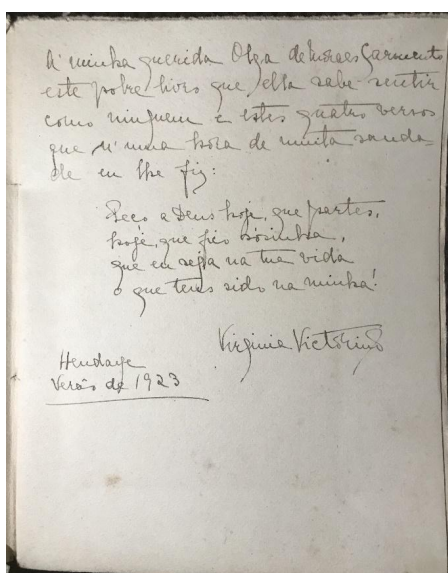 A' minha querida Olga de Moraes Sarmento
este pobre livro que ella sabe sentir
como ninguem e estes quatro versos
que n'uma hora de muita sauda-
de eu lhe fiz:
Peço a Deus hoje, que partes,
hoje, que fico sósinha,
que eu seja na tua vida
o que tens sido na minha!
Virginia Victorino
Hendaye
Verão de 1923